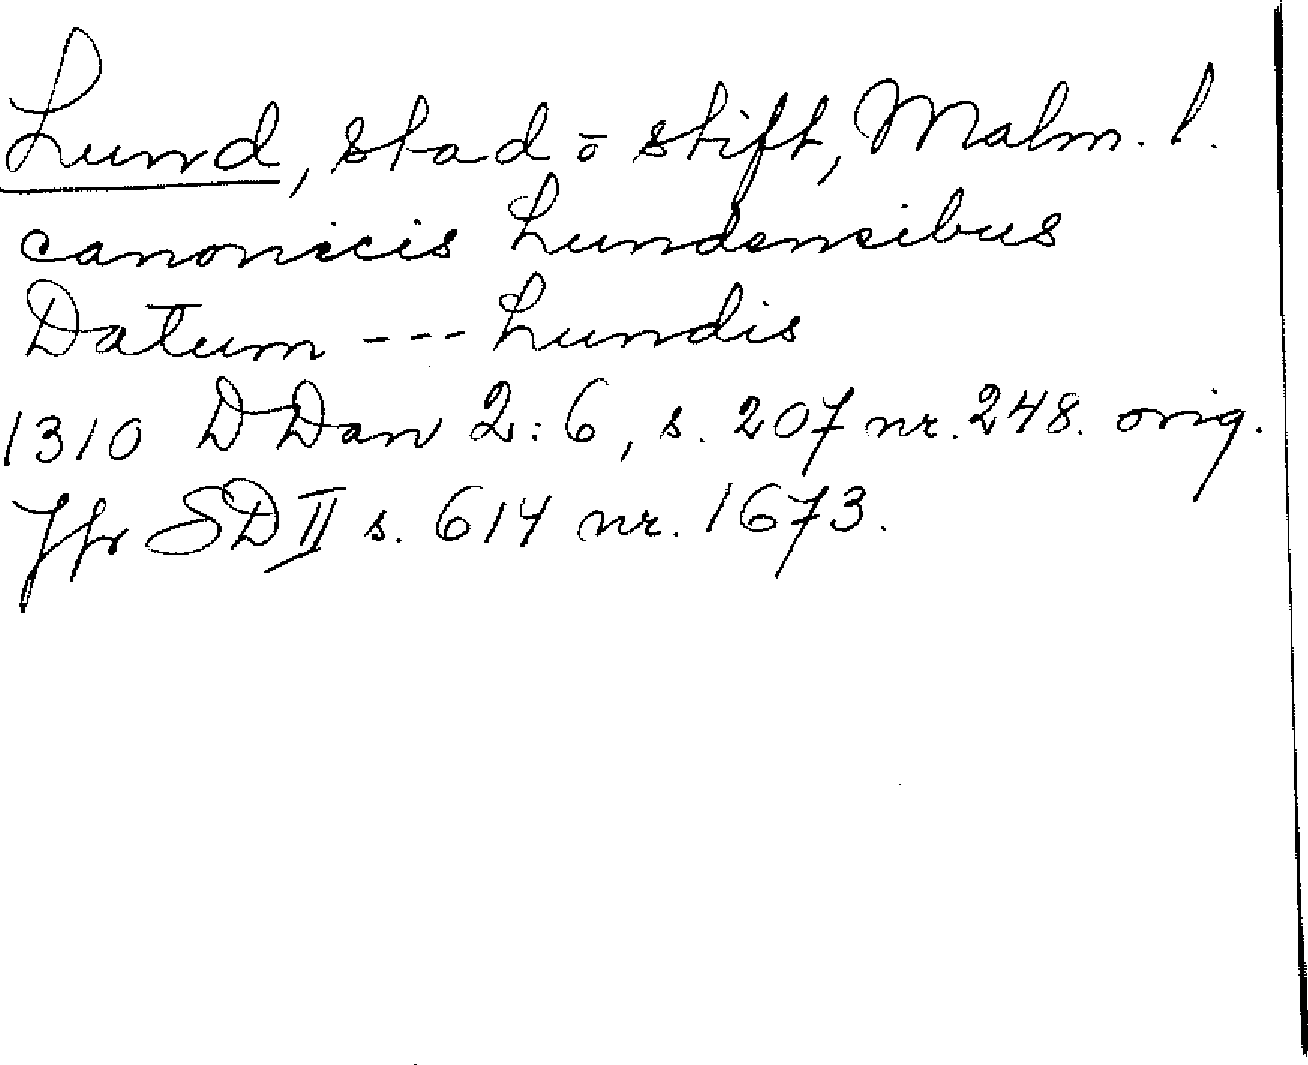 Lund, stad o stift, Malm. l.
canonicis Lundensibus
Datum --- Lundis
1310 DDan 2:6, s. 207 nr. 248. orig.
Jfr SD II s. 614 nr. 1673.